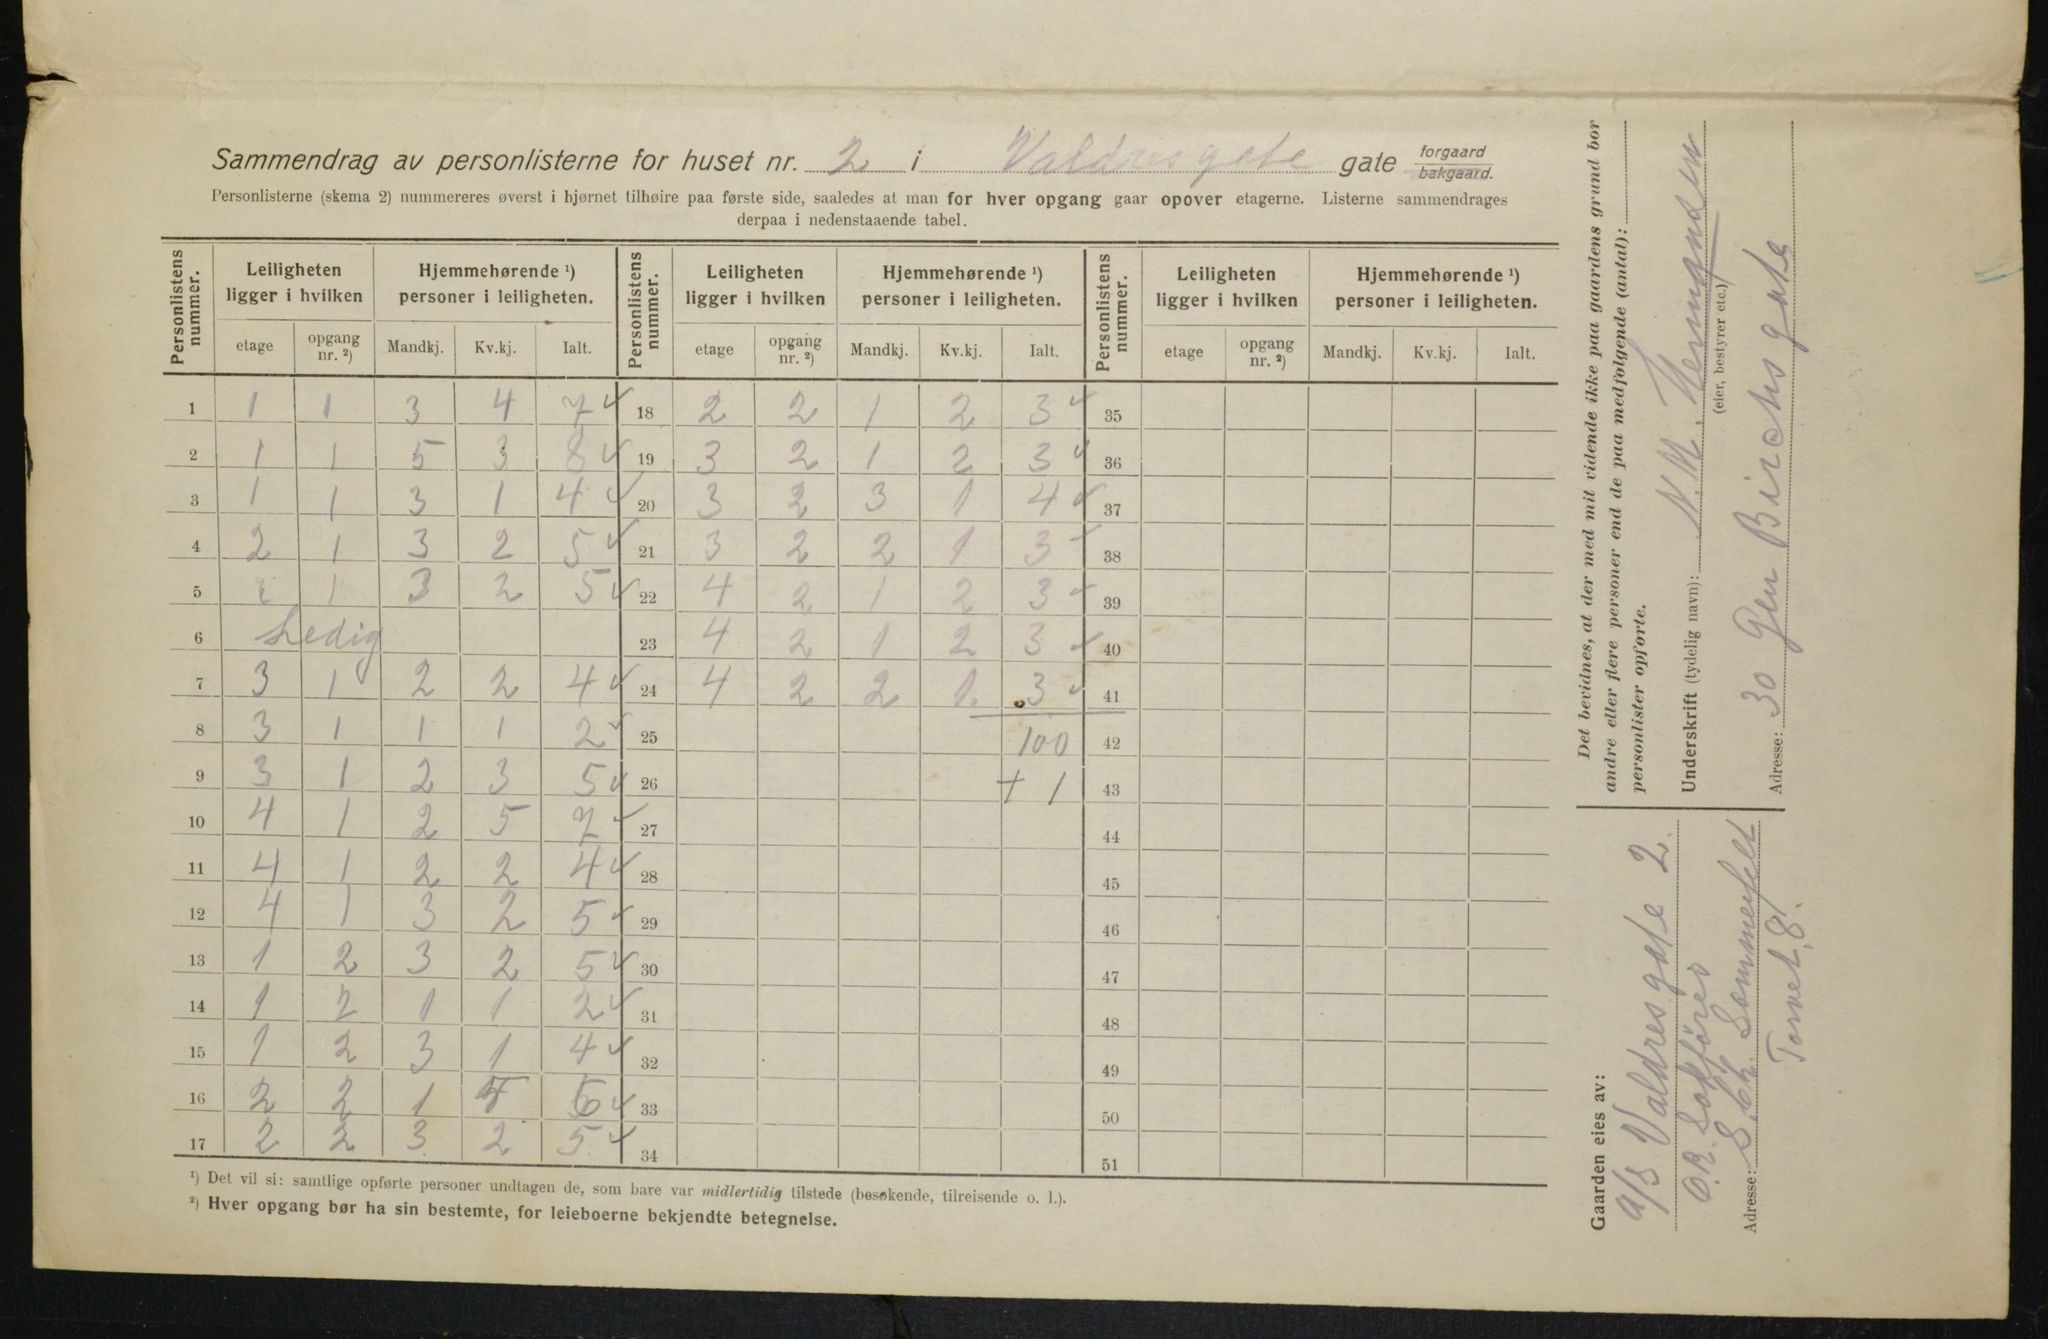 Sammendrag av personlisterne for huset nr. 2 i Valdresgate gate forgaard bakgaard.
Personlisterne (skema 2) nummereres øverst i hjørnet tilhøire paa første side, saaledes at man for hver opgang gaar opover etagerne. Listerne sammendrages
derpaa i nedenstaaende tabel.
Personlistens nummer. Leiligheten ligger i hvilken Hjemmehørende ¹) personer i leiligheten. Personlistens nummer. Leiligheten ligger i hvilken Hjemmehørende ¹) personer i leiligheten. Personlistens nummer. Leiligheten ligger i hvilken Hjemmehørende ¹) personer i leiligheten.
etage opgang nr. ²) Mandkj. Kv.kj. Ialt. etage opgang nr. ²) Mandkj. Kv.kj. Ialt. etage opgang nr. ²) Mandkj. Kv.kj. Ialt.
1 1 1 3 4 7 18 2 2 1 2 3 35
2 1 1 5 3 8 19 3 2 1 2 3 36
3 1 1 3 1 4 20 3 2 3 1 4 37
4 2 1 3 2 5 21 3 2 2 1 3 38
5 1 3 2 5 22 4 2 1 2 3 39
6 Ledig 23 4 2 1 2 3 40
7 3 1 2 2 4 24 4 2 2 1 3 41
8 3 1 1 1 2 25 100 42
9 3 1 2 3 5 26 + 1 43
10 4 1 2 5 7 27 44
11 4 1 2 2 4 28 45
12 4 1 3 2 5 29 46
13 1 2 3 2 5 30 47
14 1 2 1 1 2 31 48
15 1 2 3 1 4 32 49
16 2 2 1 6 33 50
17 2 2 3 2 5 34 51
¹) Det vil si: samtlige opførte personer undtagen de, som bare var midlertidig tilstede (besøkende, tilreisende o. l.).
²) Hver opgang bør ha sin bestemte, for leieboerne bekjendte betegnelse.
Det bevidnes, at der med mit vidende ikke paa gaardens grund bor
andre eller flere personer end de paa medfølgende (antal):
personlister opførte.
Underskrift (tydelig navn): N. M. Hermansen
(eier, bestyrer etc.)
Adresse: 30 Gen Birchs gate
Gaarden eies av:
A/S Valdresgate 2.
O.R. Sakfører
Adresse: S. Chr. Sommerfelt
Torvet 8.